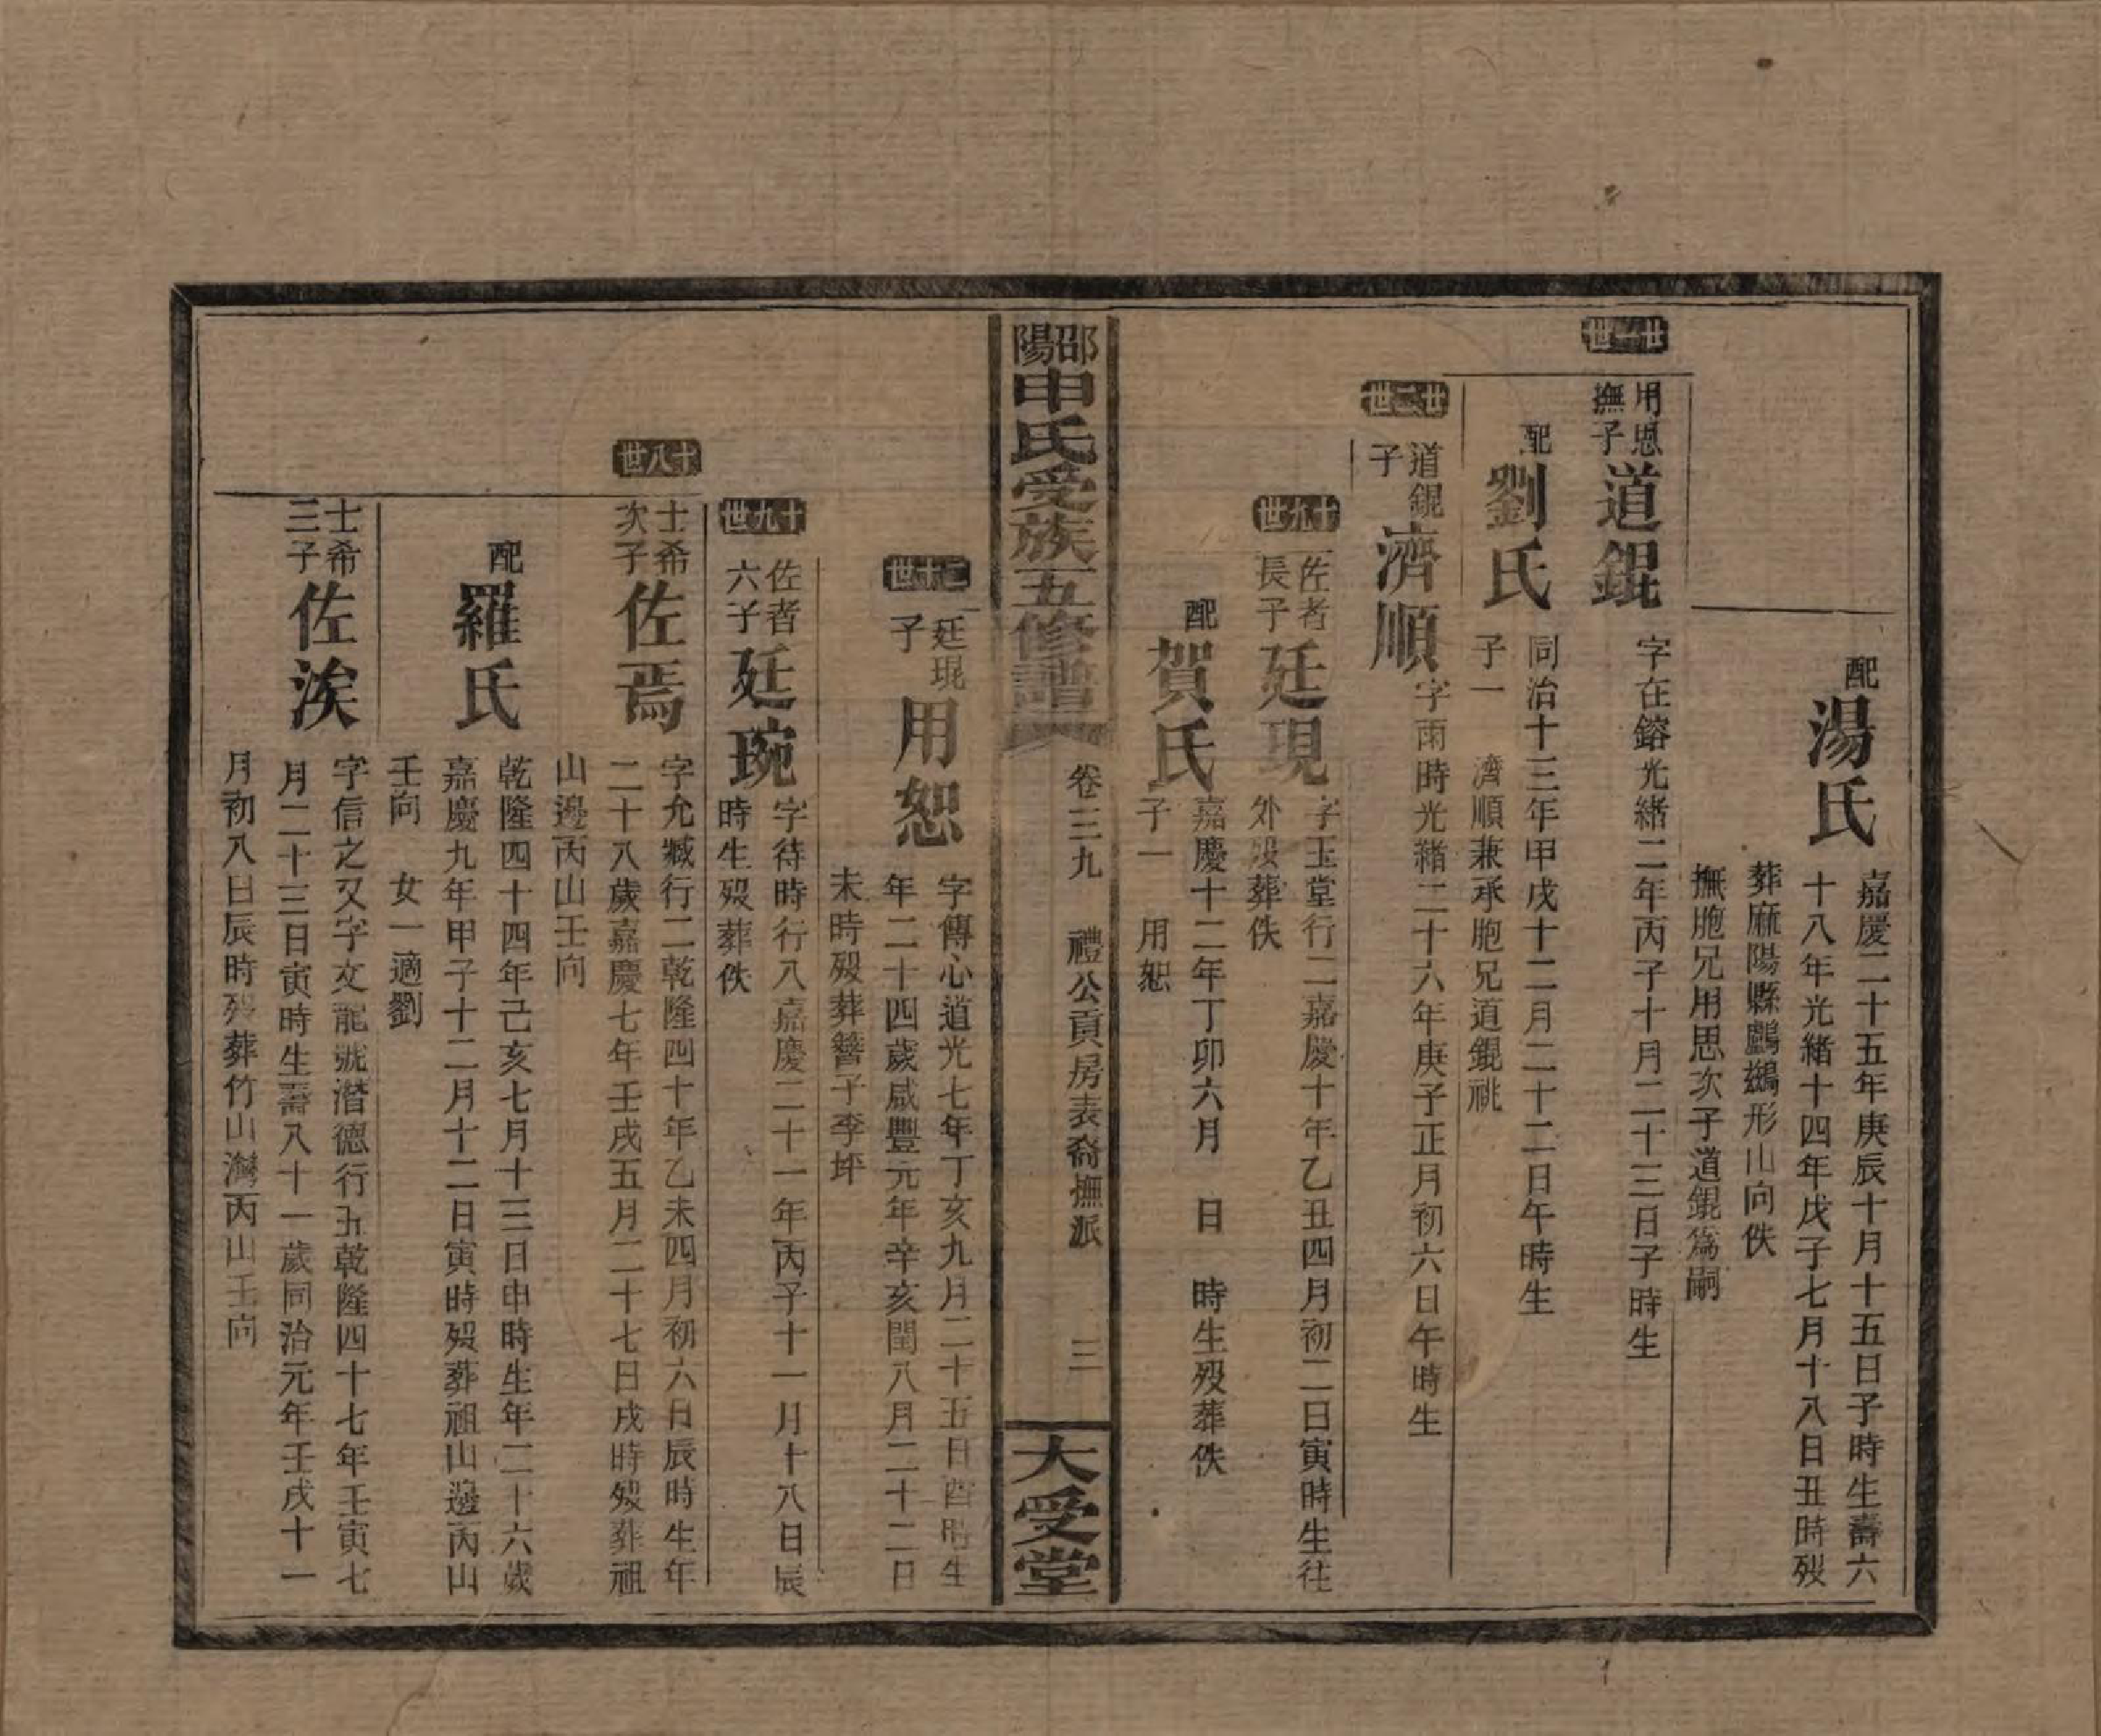 配
湯氏
嘉慶二十五年庚辰十月十五日子時生壽六
十八年光緒十四年戊子七月十八日丑時歿
葬麻陽縣鸕鷀形山向佚
撫胞兄用思次子道錕爲嗣
廿一世
用思
撫子
道錕
字在鎔光緒二年丙子十月二十三日子時生
配
劉氏
同治十三年甲戌十二月二十二日午時生
子一 濟順兼承胞兄道錕祧
廿二世
道錕
子
濟順
字雨時光緒二十六年庚子正月初六日午時生
十九世
佐者
長子
廷現
字玉堂行二嘉慶十年乙丑四月初二日寅時生往
外歿葬佚
配
賀氏
嘉慶十二年丁卯六月 日 時生歿葬佚
子一 用恕
邵陽申氏受族五修譜
卷三九 禮公貢房表裔撫派
三
大受堂
二十世
廷琨
子
用恕
字傳心道光七年丁亥九月二十五日酉時生
年二十四歲咸豐元年辛亥閏八月二十二日
未時歿葬簪子李坪
十九世
佐者
六子
廷琬
字待時行八嘉慶二十一年丙子十一月十八日辰
時生歿葬佚
十八世
士希
次子
佐焉
字允臧行二乾隆四十年乙未四月初六日辰時生年
二十八歲嘉慶七年壬戌五月二十七日戌時歿葬祖
山邊丙山壬向
配
羅氏
乾隆四十四年己亥七月十三日申時生年二十六歲
嘉慶九年甲子十二月十二日寅時歿葬祖山邊丙山
壬向 女一適劉
士希
三子
佐涘
字信之又字文龍號潛德行五乾隆四十七年壬寅七
月二十三日寅時生壽八十一歲同治元年壬戌十一
月初八日辰時歿葬竹山灣丙山壬向